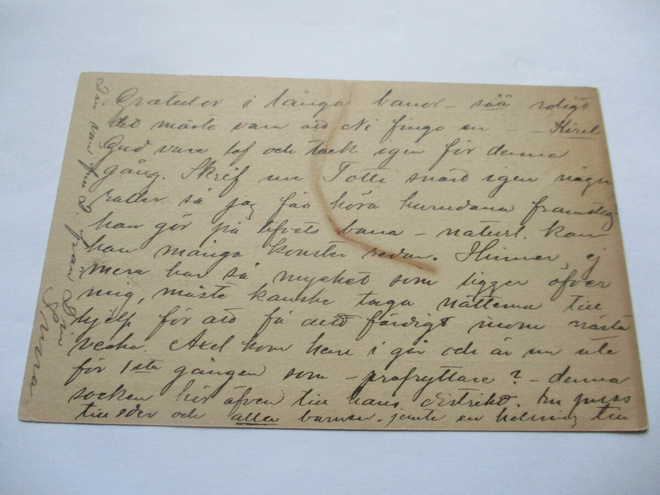 Gratulor i långa banor – såå roligt
det måste vara att Ni fingo en –
Gud vare lof och tack igen för denna
gång. Skrif nu Totti snart igen några
rader så jag får höra hurudana framsteg
han gör på lifvets bana – naturl. kan
han många konster redan. Hinner ej
mera har så mycket som ligger öfver
mig, måste kanske taga nätterna till
hjelp för att få allt färdigt inom nästa
vecka. Axel kom hem i går och är nu ute
för 1sta gången som – profryttare? – denna
socken hör äfven till hans distrikt. En puss
till eder och alla barnen. jemte en helsning till
Din från Din